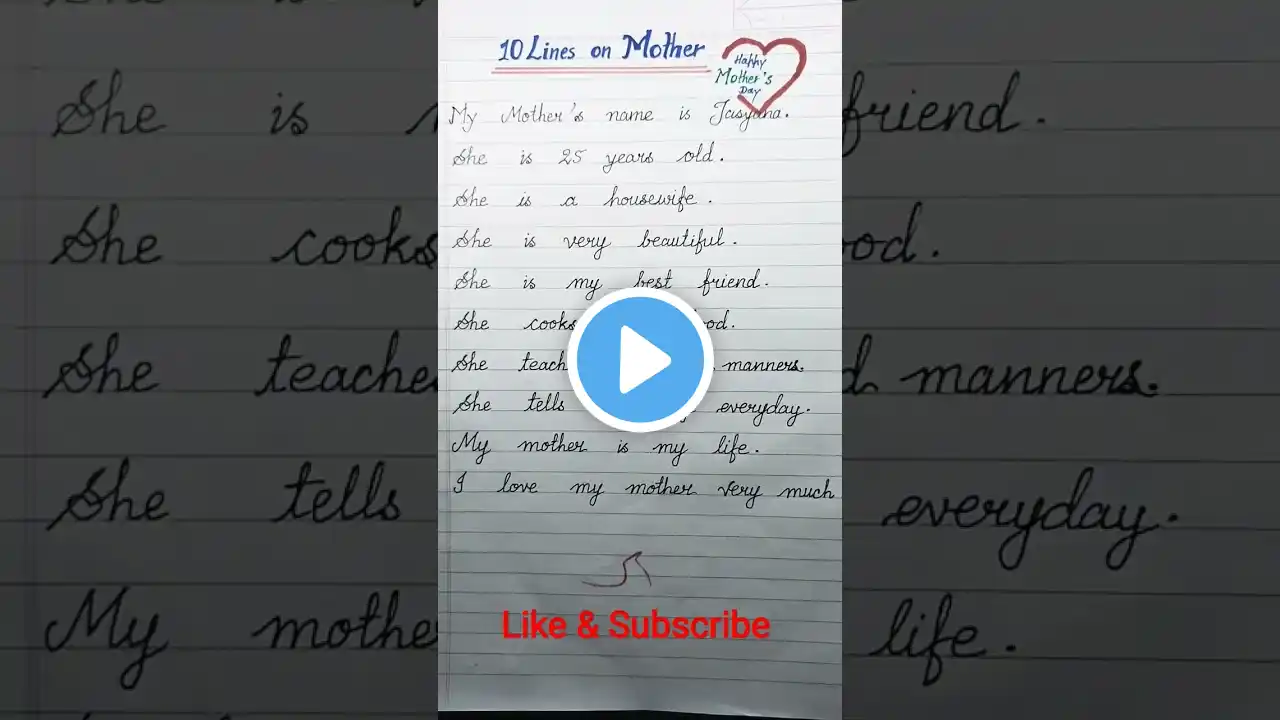 10 Lines on Mother
Happy
Mother's
Day
My Mother's name is Jasyana.
She is 25 years old.
She is a housewife.
She is very beautiful.
She is my best friend.
She cooks ood.
She teach manners.
She tells everyday.
My mother is my life.
I love my mother very much
Like & Subscribe
She is friend.
She cooks ood.
She teache d manners.
She tells everyday.
My mothe life.